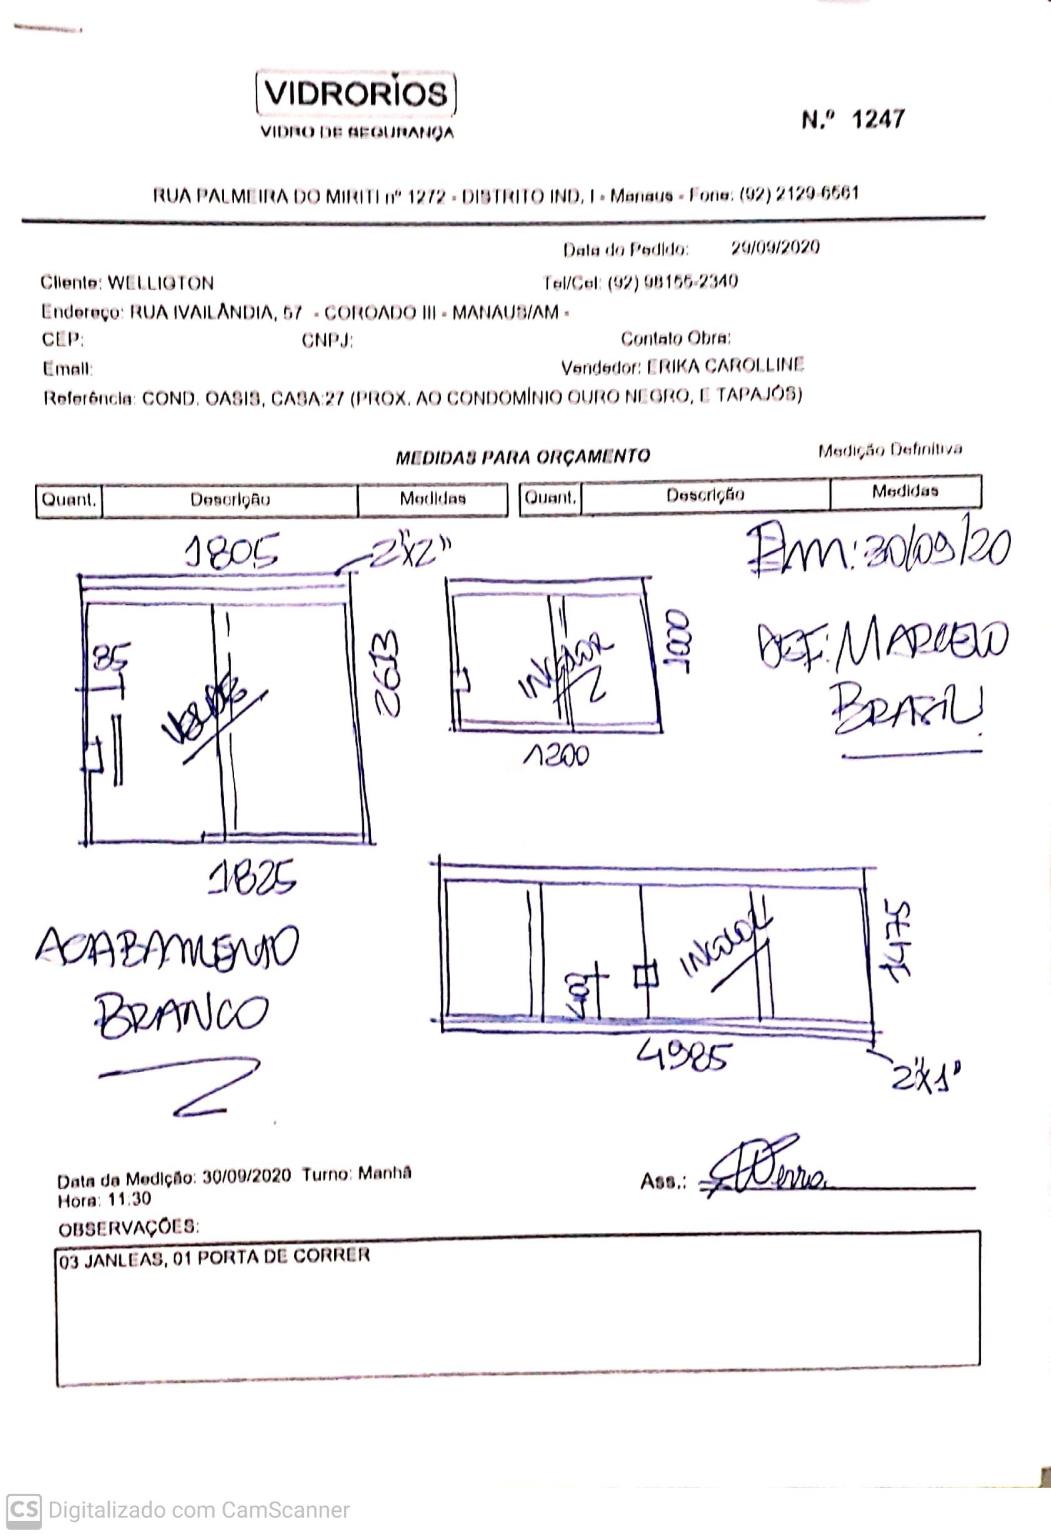 VIDRORIOS
VIDRO DE SEGURANÇA
N.º 1247
RUA PALMEIRA DO MIRITI nº 1272 - DISTRITO IND. I - Manaus - Fone: (92) 2129-6561
Data do Pedido: 29/09/2020
Cliente: WELLIGTON Tel/Cel: (92) 98155-2340
Endereço: RUA IVAILÂNDIA, 57 - COROADO III - MANAUS/AM -
CEP: CNPJ: Contato Obra:
Email: Vendedor: ERIKA CAROLLINE
Referência: COND. OASIS, CASA 27 (PROX. AO CONDOMÍNIO OURO NEGRO, E TAPAJÓS)
MEDIDAS PARA ORÇAMENTO Medição Definitiva
Quant. Descrição Medidas Quant. Descrição Medidas
1805 2"x2" Em: 30/09/20
85 2613 INCOLOR 1000 DEF: MARCELO
VERDE BRASIL
1200
1825
INCOLOR 1475
ACABAMENTO
BRANCO
4985
2"x1"
Data da Medição: 30/09/2020 Turno: Manhã
Hora: 11:30
Ass.:
OBSERVAÇÕES:
03 JANLEAS, 01 PORTA DE CORRER
CS Digitalizado com CamScanner